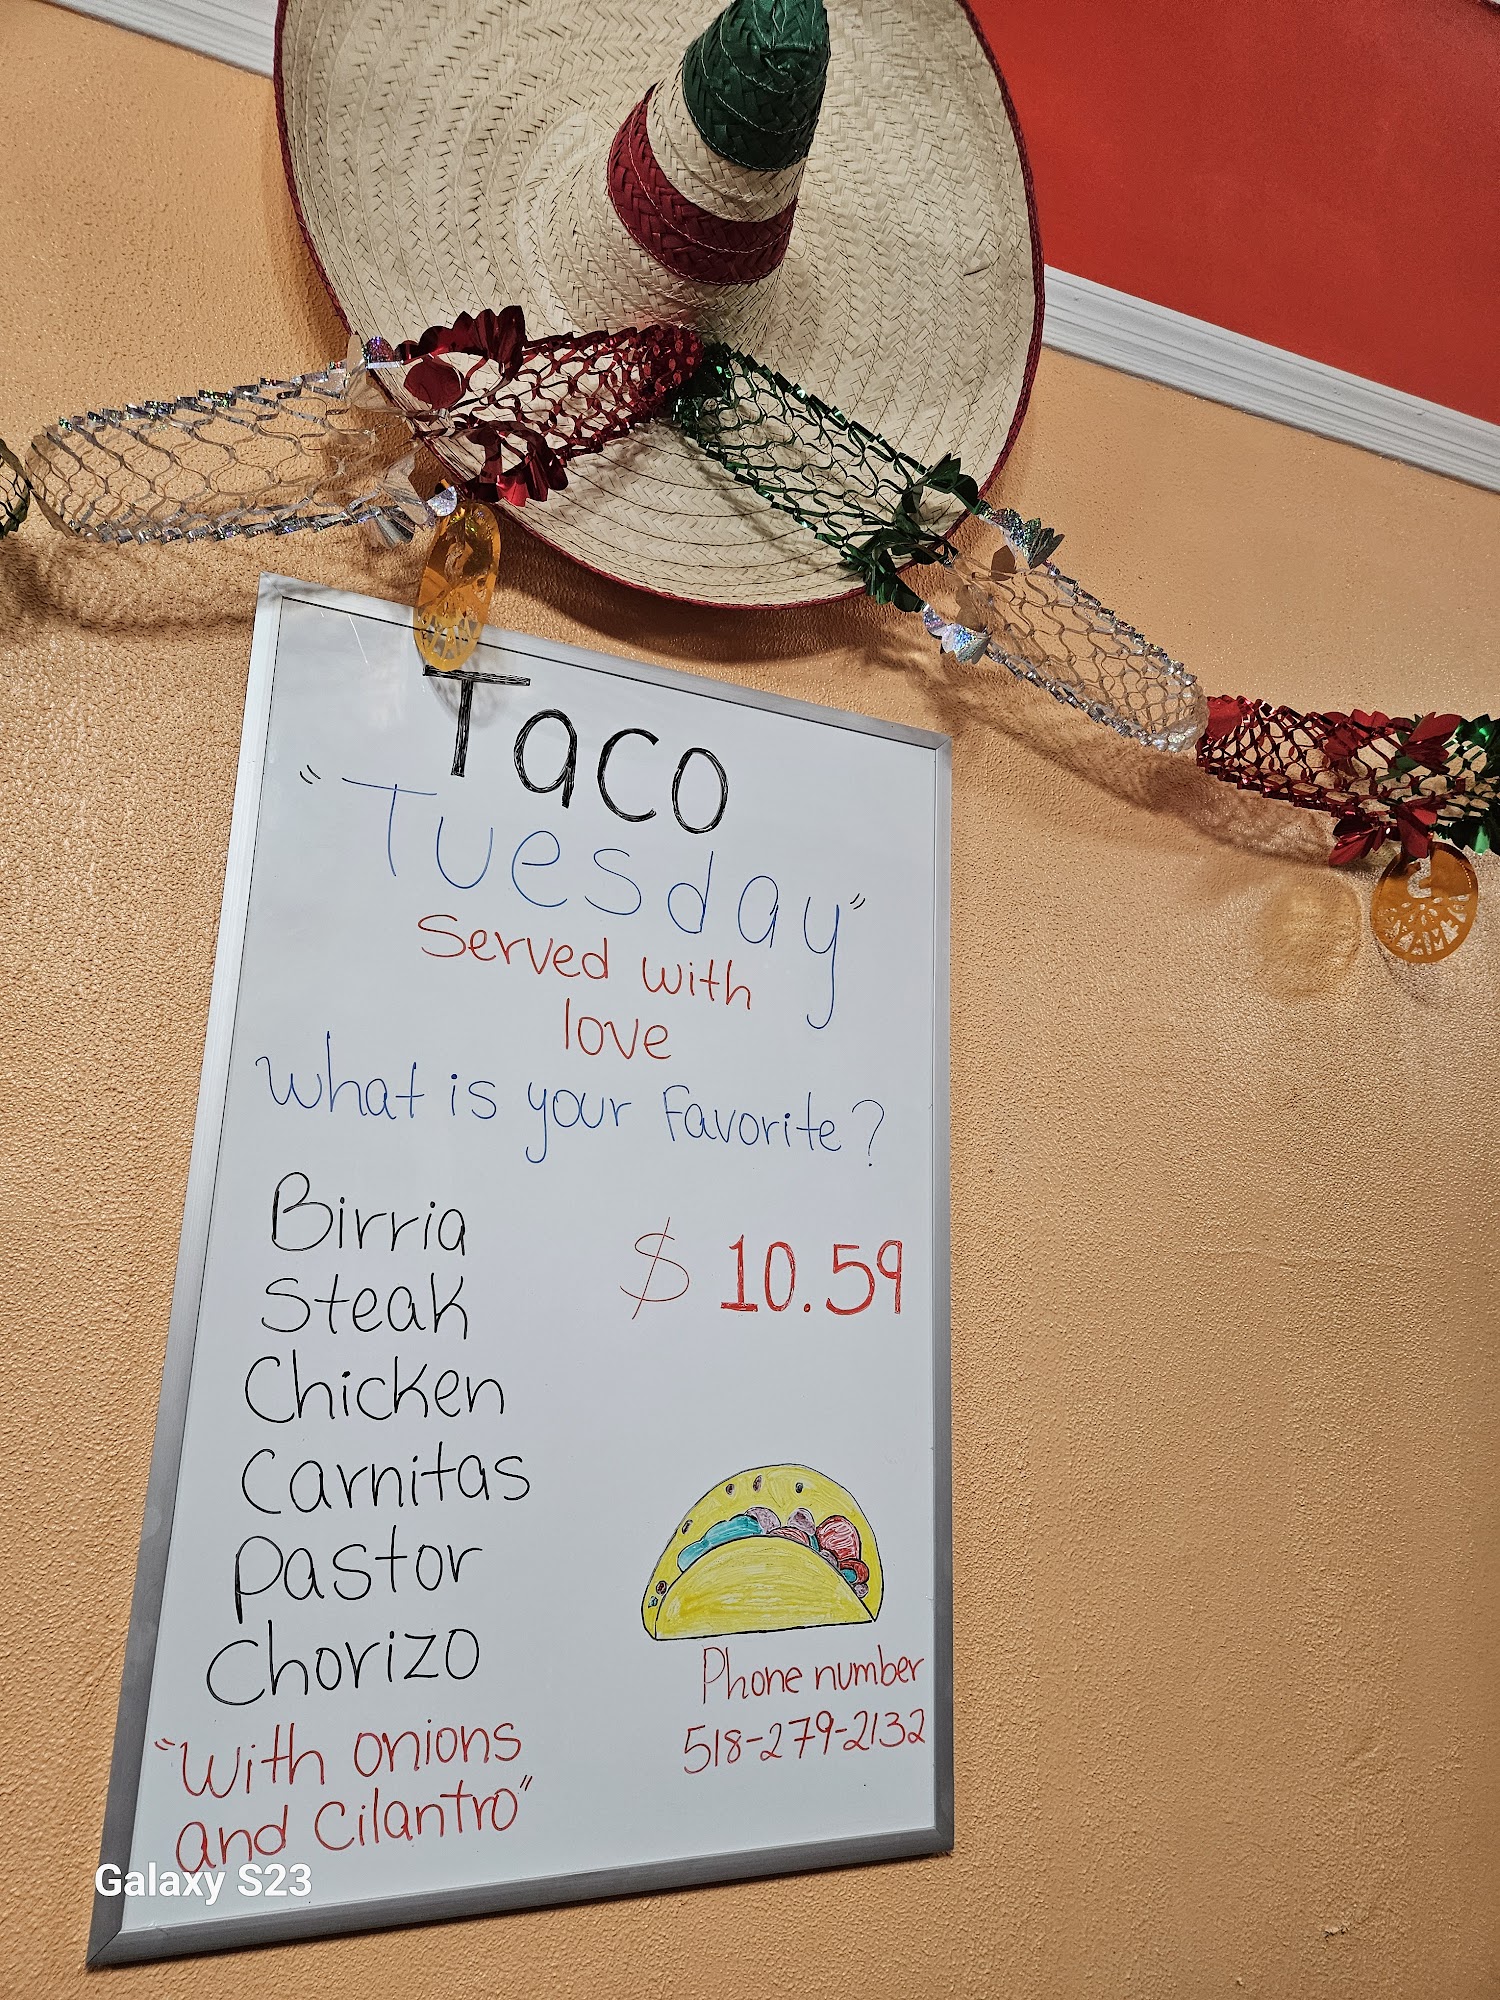 Taco
"Tuesday"
Served with
love
What is your Favorite?
Birria
$ 10.59
Steak
Chicken
Carnitas
Pastor
Chorizo
"With onions
and Cilantro"
Phone number
518-279-2132
Galaxy S23